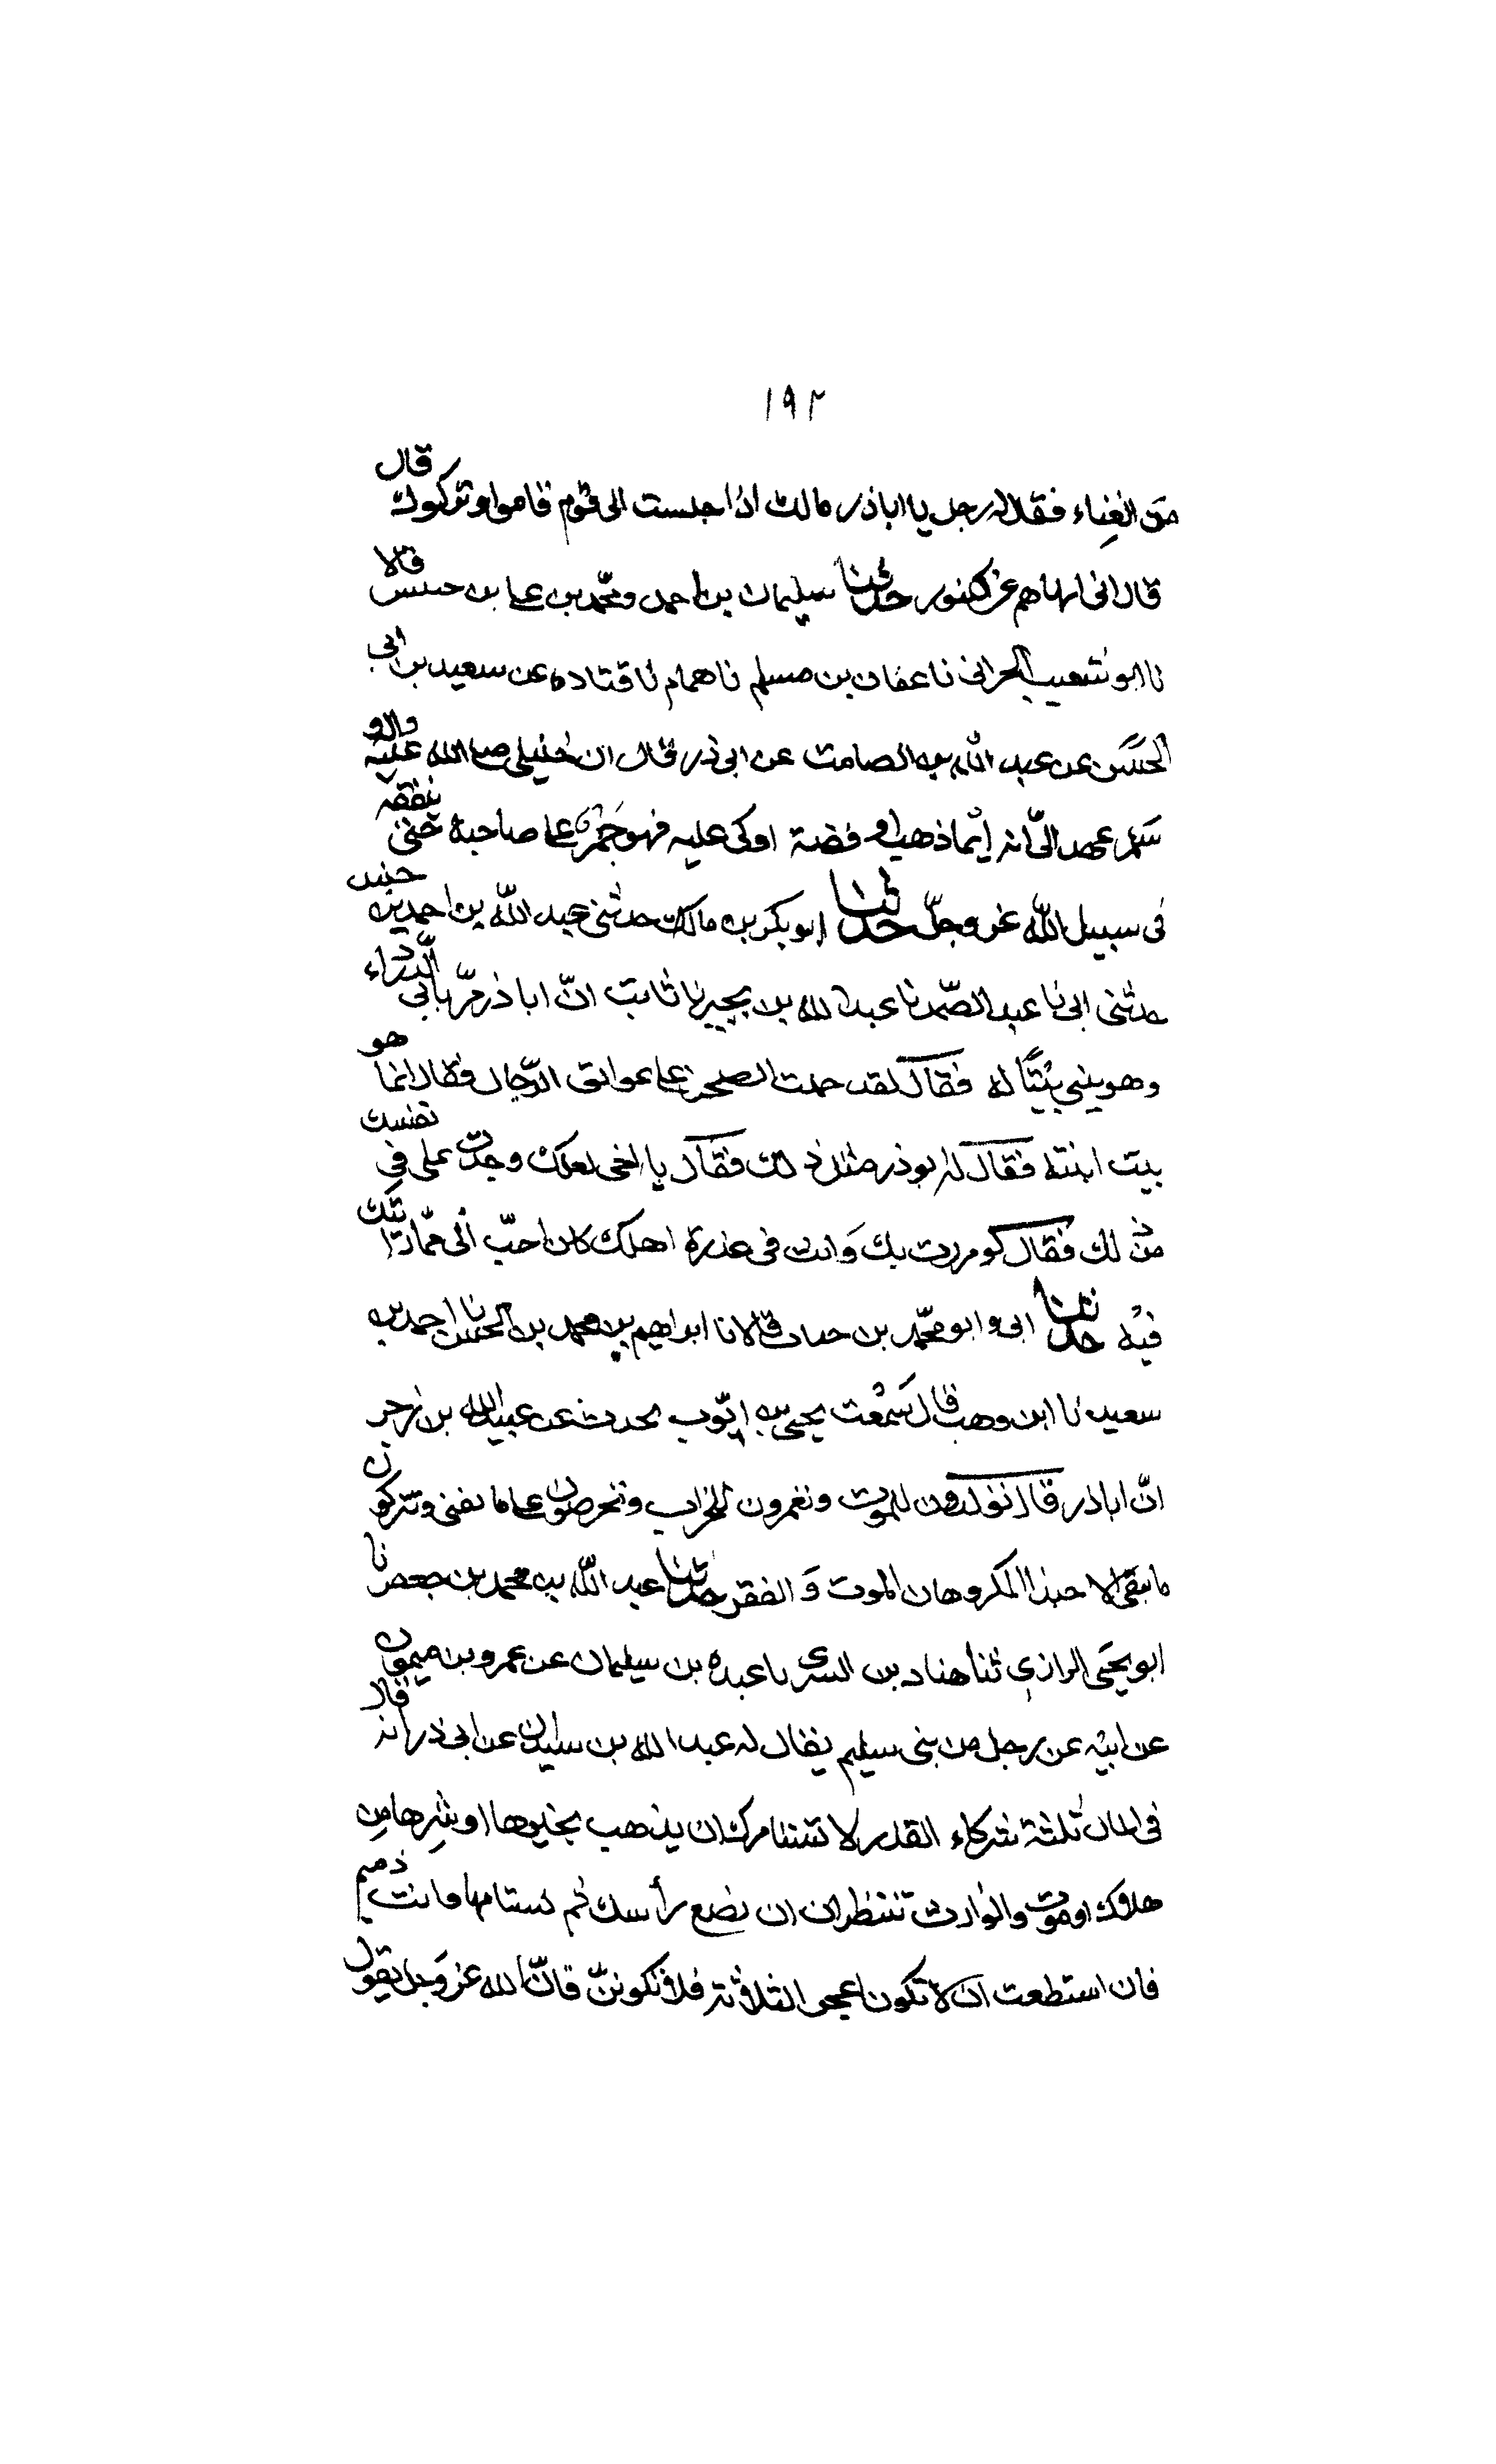 ١٩٢
من الغناء فقال له رجل يا اباذر مالك اذا جلست الى قوم قاموا وتركوك قال
قال انى انهاهم عن الكنوز حدثنا سليمان بن احمد ومحمد بن على بن حبيش قالا
نا ابو شعيب الحرانى نا عفان بن مسلم نا همام نا قتاده عن سعيد بن ابى
الحسن عن عبد الله بن الصامت عن ابى ذر قال ان خليلى صلى الله عليه واله و
سلم عهد الىّ انه ايما ذهب او فضة اوكى عليه فهو جمر على صاحبه حتى ينفقه
فى سبيل الله عز وجلّ حدثنا ابو بكر بن مالك حدثنى عبد الله بن احمد بن حنبل
حدثنى ابى نا عبد الصّمد نا عبد الله بن بجير نا ثابت انّ اباذر مرّ بابى الدّرداء
وهو يبنى بيتًا له فقال لقد حملت الصخر على عواتق الرّجال فقال انما هو
بيت ابنته فقال له ابوذر مثل ذلك فقال يا اخى لعلك وجدت على فى نفسك
من ذلك فقال لو مررت بك وَانت فى عذرة اهلك كان احبّ الى ممّا رايتك
فيه حدثنا ابى وابو محمّد بن حيان قالا نا ابراهيم بن محمد بن الحسن نا احمد بن
سعيد نا ابن وهب قال سَمعت يحيى بن ايّوب يحدث عن عبيد الله بن زحر
انّ اباذر قال تولدون للموت وتعمرون للخراب وتحرصون على ما يفنى وتتركون
ما يبقى الا حبذا المكروهان الموت وَ الفقر حدثنا عبد الله بن محمد بن جعفر نا
ابو يحيَى الرازى ثنا هناد بن السرى نا عبده بن سليمان عن عمرو بن ميمون
عن ابيه عن رجل من بنى سليم يقال له عبد الله بن سيدان عن ابى ذر انه قال
فى المال ثلثة شركاء القدر لا تستامرك ان يذهب بخيرها او شرها من
هلاك او موت والوارث تنتظران ان تضع رأسك ثم تستامها وانت ذميم
فان استطعت ان لا تكون اعجى الثلاثة فلا تكوننّ فانّ الله عز وَجل يقول